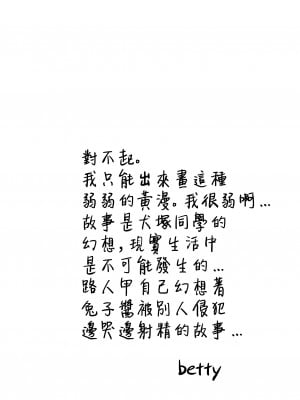 對不起。
我只能出來畫這種
弱弱的黃漫。我很弱啊...
故事是犬塚同學的
幻想,現實生活中
是不可能發生的...
路人甲自己幻想着
兔子醬被別人侵犯
邊哭邊射精的故事...
betty